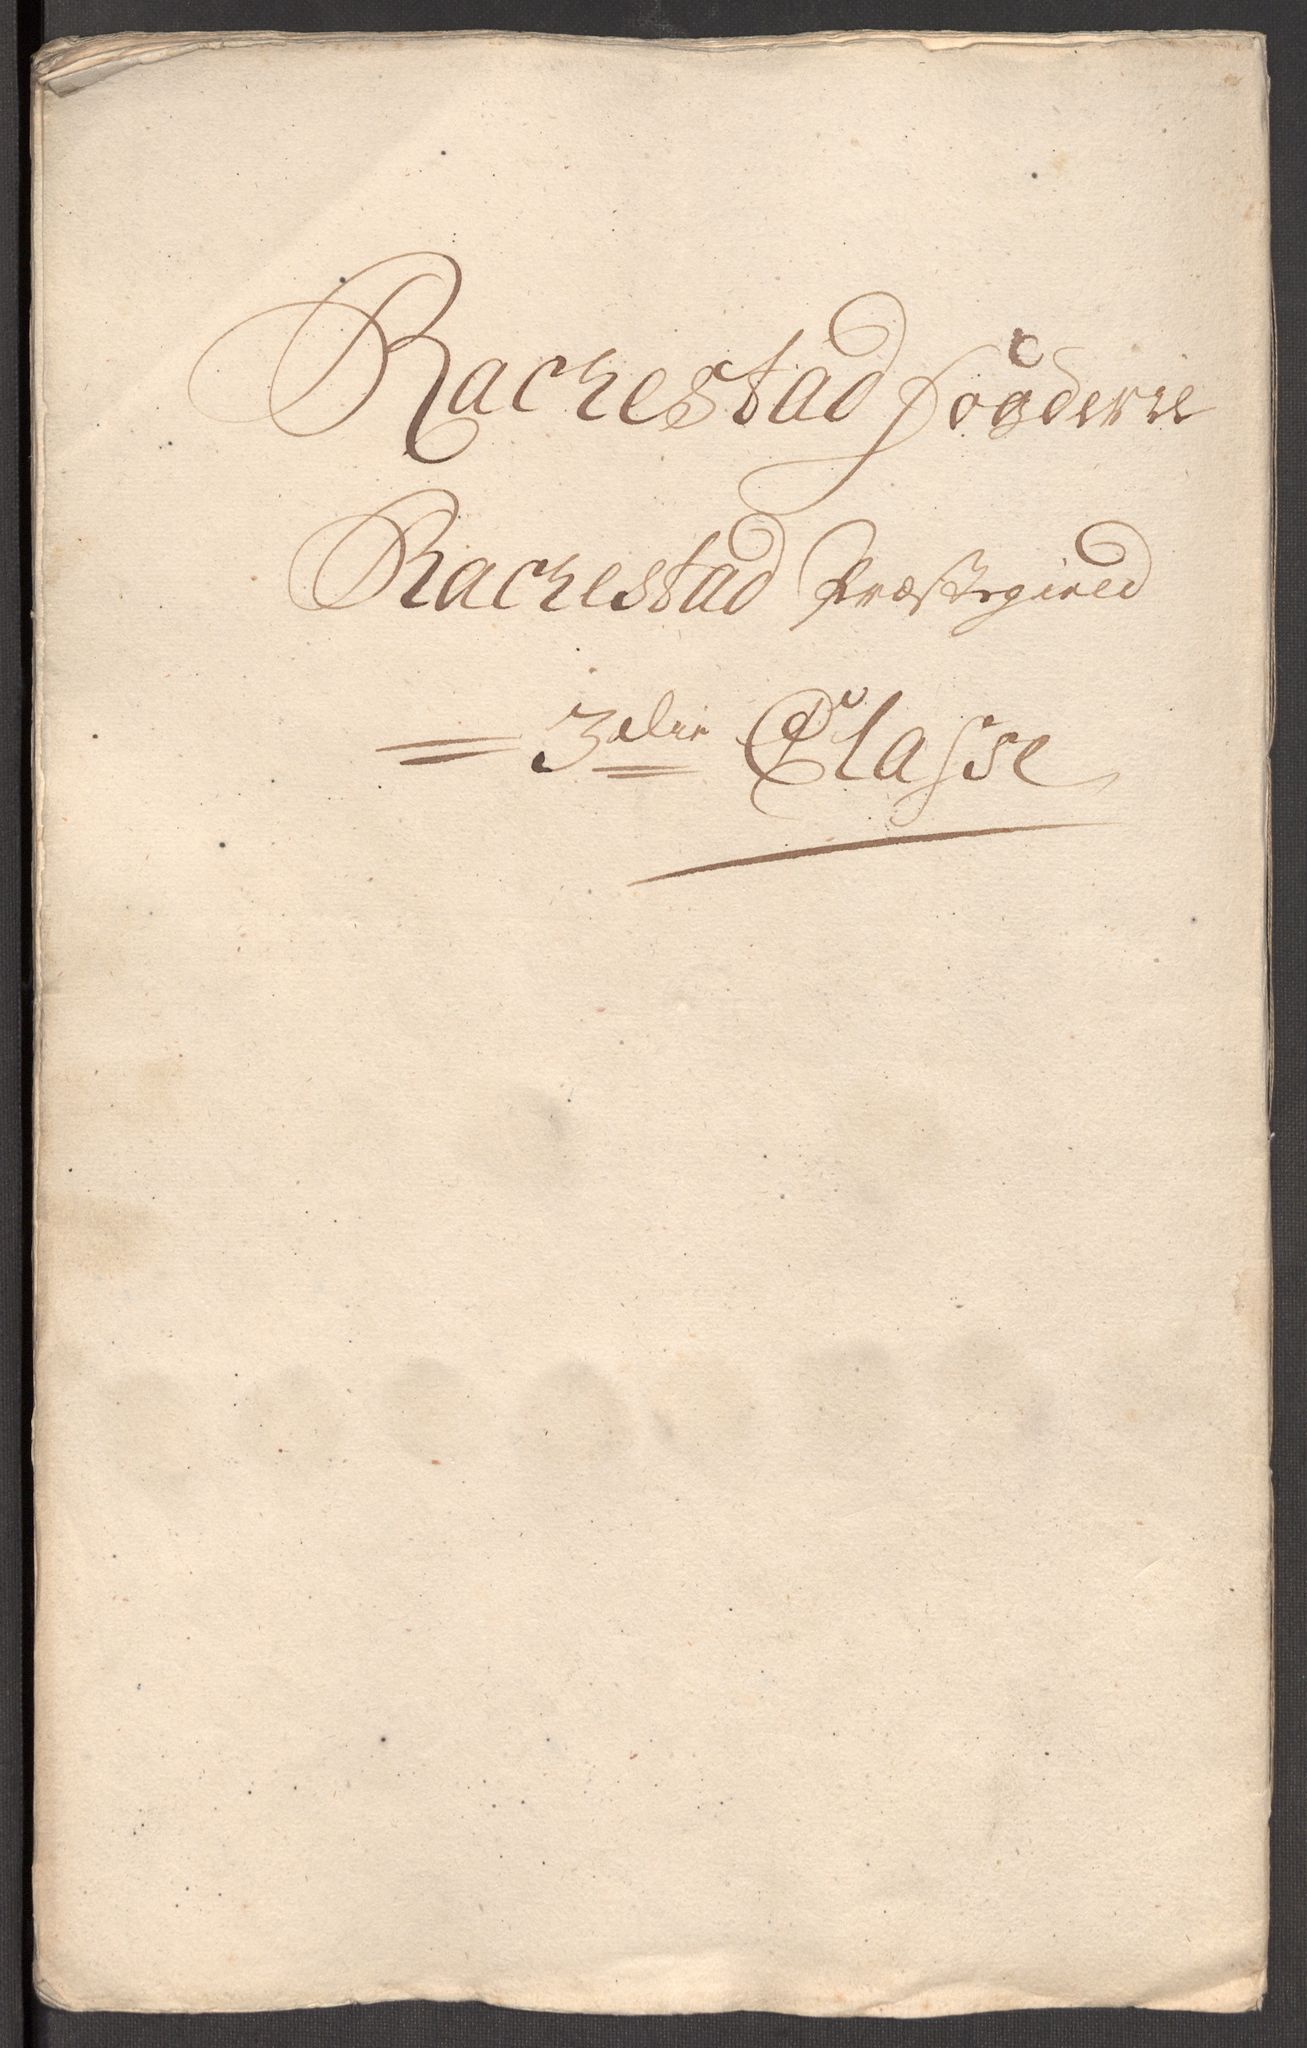 Rachestad fogderie
Rachestad Præstegield
3die Classe